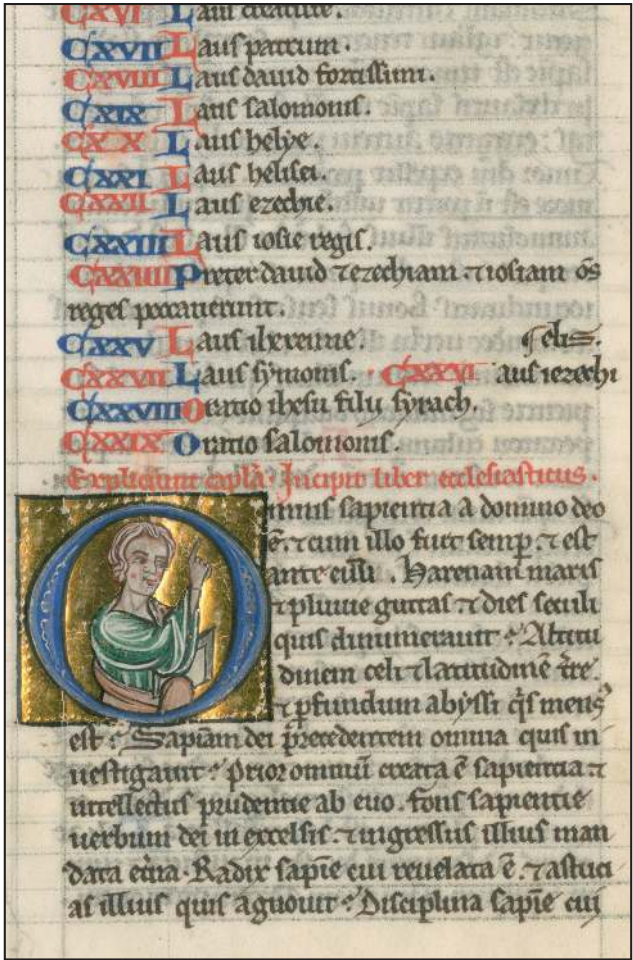 CXVI Laus creature.
CXVII Laus patrum.
CXVIII Laus dauid fortissim.
CXIX Laus salomonis.
CXX Laus helye.
CXXI Laus helisei.
CXXII Laus ezechie.
CXXIII Laus iosie regis.
CXXIIII Preter dauid ⁊ ezechiam. ⁊ iosiam om̄s
reges peccauerunt.
CXXV Laus iheremie. ¶ elis.
CXXVII Laus symonis. CXXVI aus iezechi
CXXVIII Oratio ihesu filii syrach.
CXXIX Oratio salomonis.
Expliciunt capl̄a. Incipit liber ecclesiasticus.
Omnis sapientia a domino deo
ē. ⁊ cum illo fuit semp̱. ⁊ est
ante euū. Harenam maris
⁊ pluuie guttas ⁊ dies seculi
quis dinumerauit? Altitu
dinem celi ⁊ latitudinē t̄re.
⁊ ꝓfundum abyssi q̄s mensꝰ
est? Sapīam dei p̄cedentem omnia quis in
uestigauit? Prior omniū creata ē sapientia ⁊
intellectus prudentie ab euo. fons sapientie
uerbum dei in excelsis. ⁊ ingressus illius man
data et̄na. Radix sapīe cui reuelata ē. ⁊ astuci
as illius quis agnouit? Disciplina sapīe cui